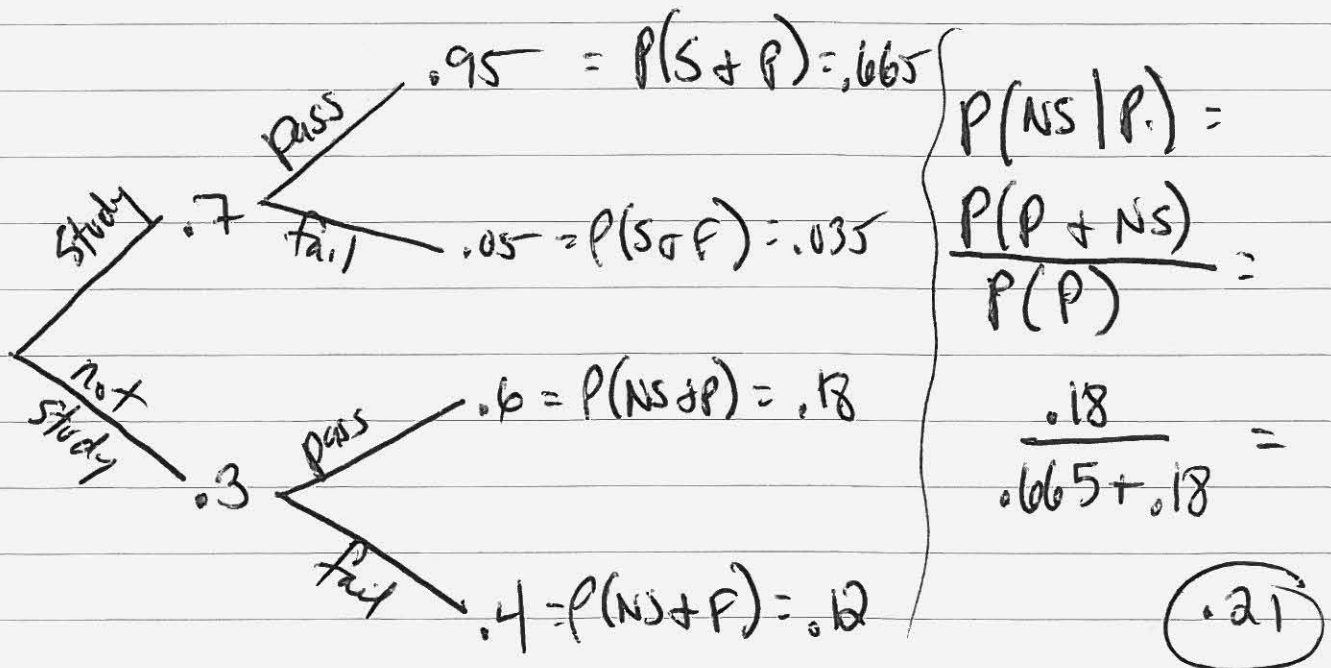 pass .95 = P(S + P) = .665
study .7
fail .05 = P(S + F) = .035
not study .3
pass .6 = P(NS + P) = .18
fail .4 = P(NS + F) = .12
P(NS | P.) =
P(P + NS) / P(P) =
.18 / .665 + .18 =
.21